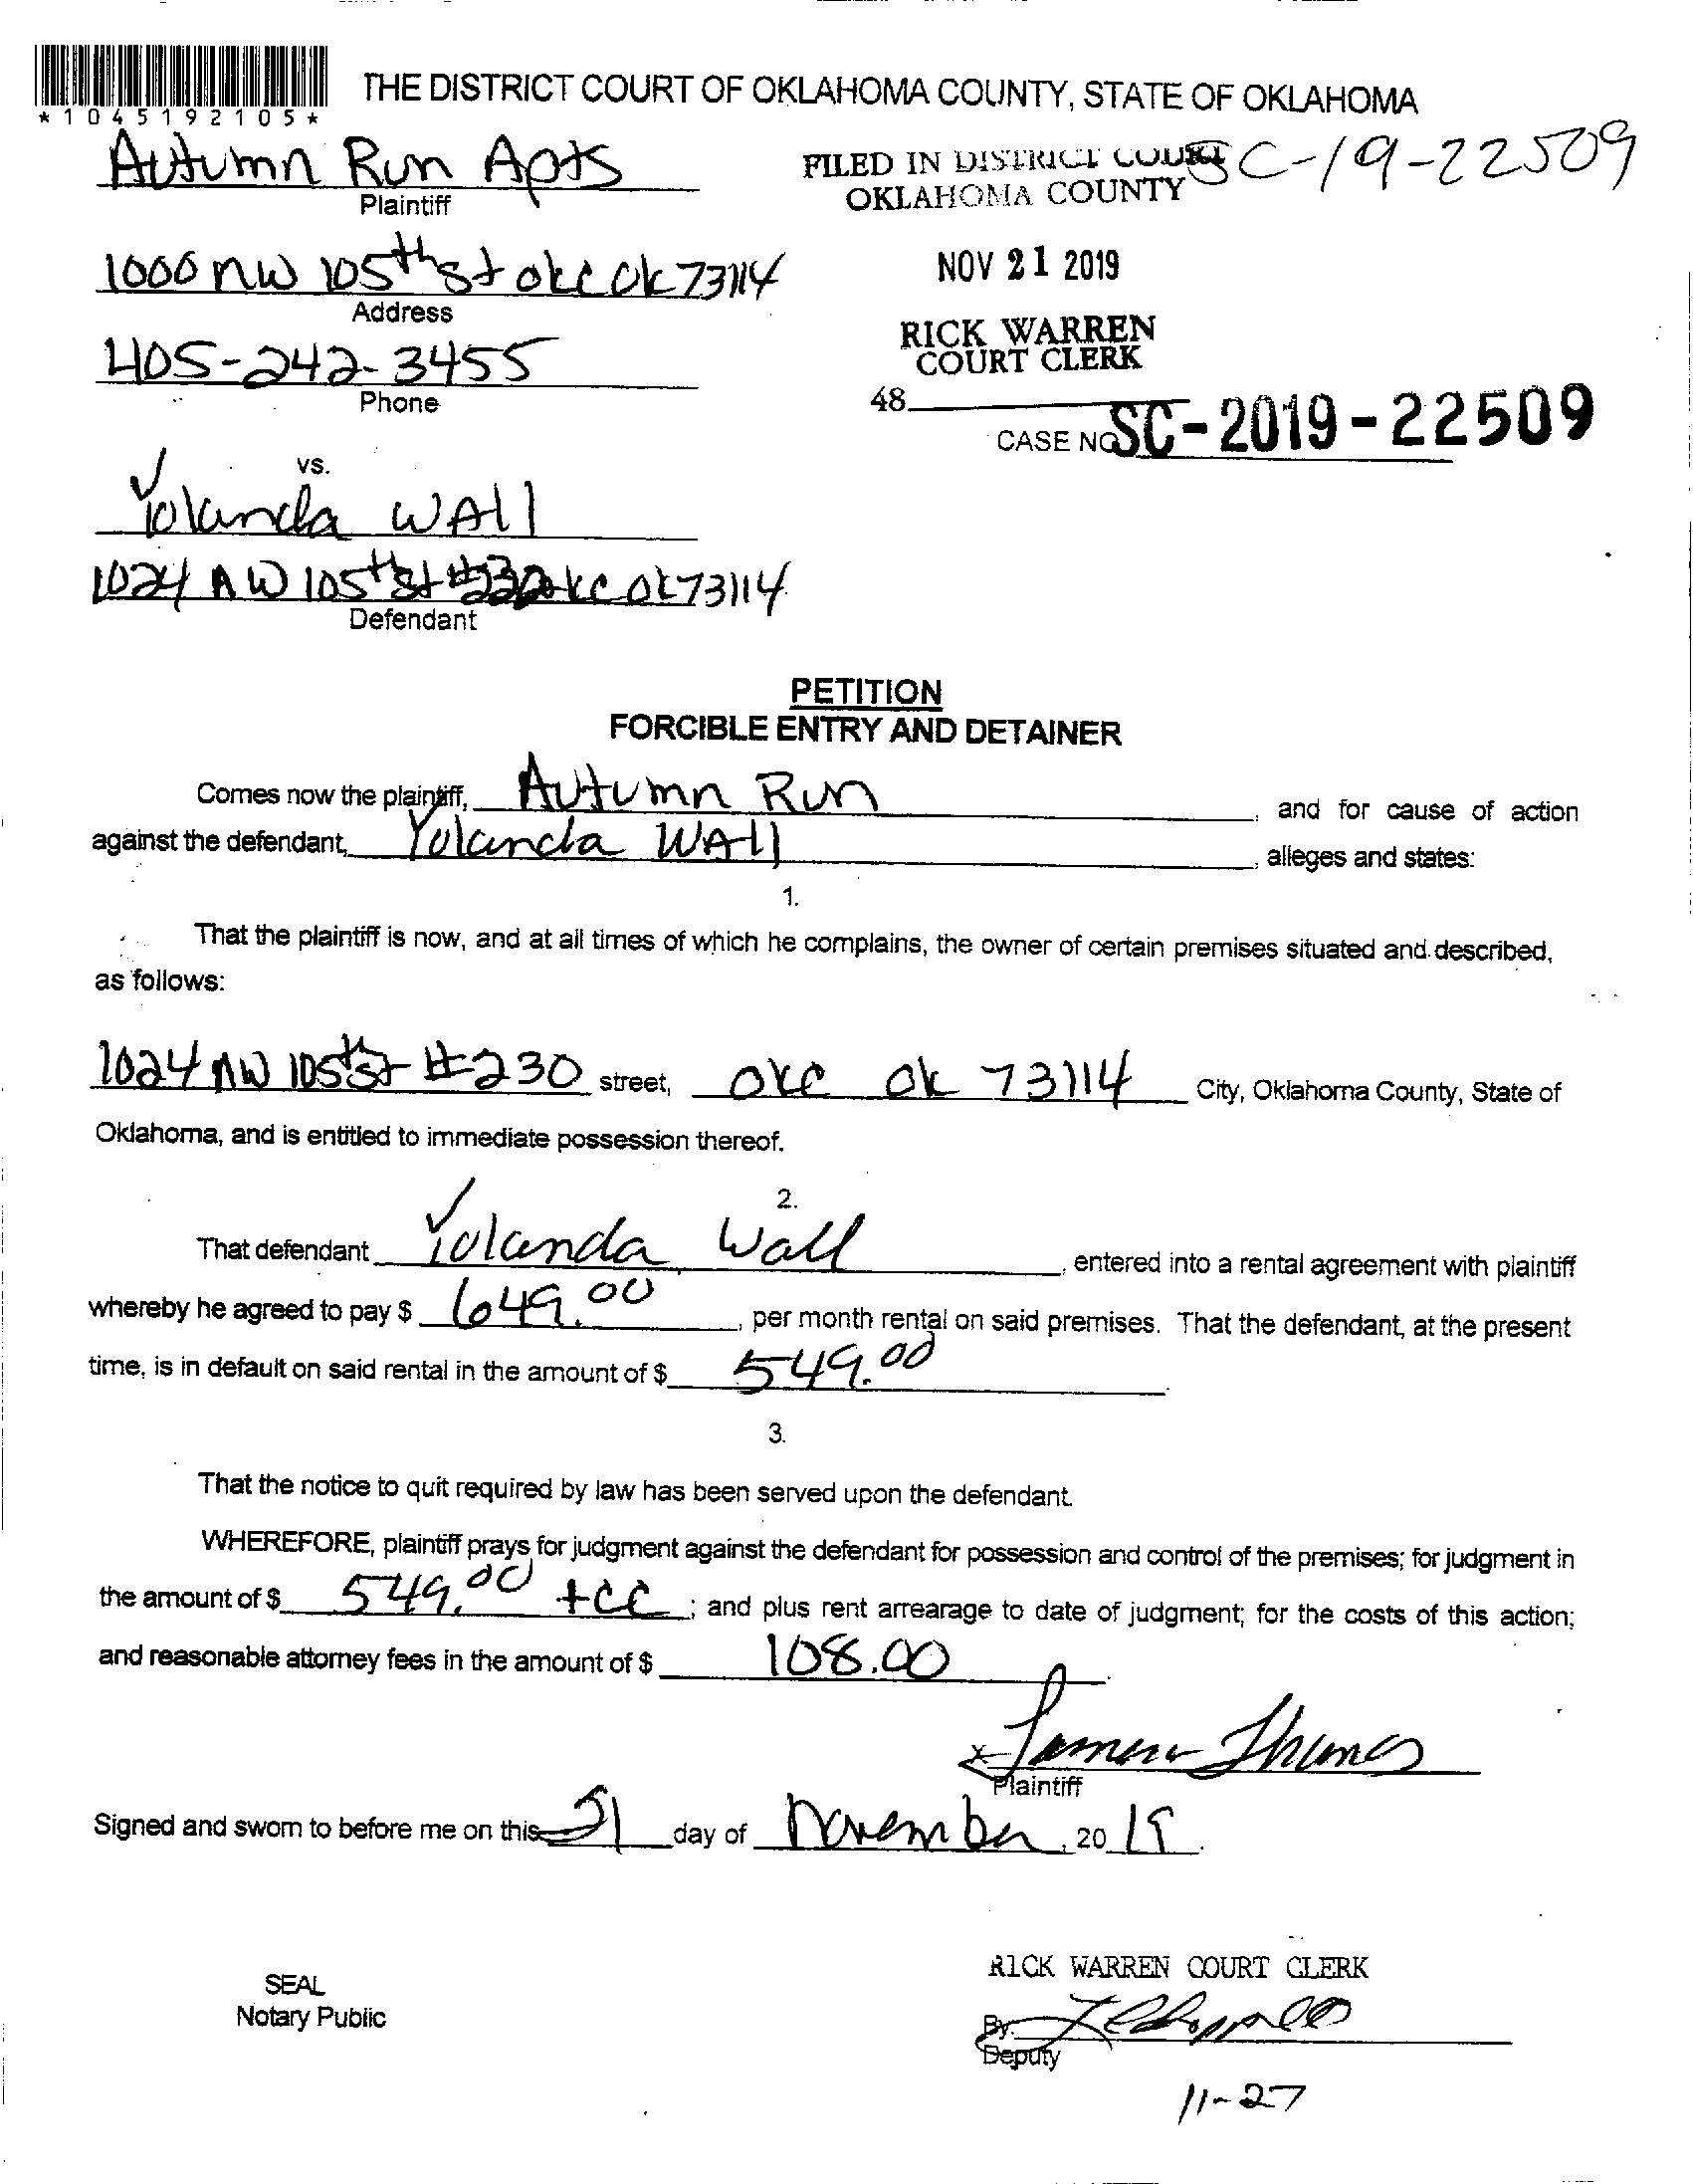 THE DISTRICT COURT OF OKLAHOMA COUNTY, STATE OF OKLAHOMA
*1045192105*
Autumn Run Apts
Plaintiff
FILED IN DISTRICT COURT
SC-19-22509
OKLAHOMA COUNTY
1000 NW 105th St okc ok 73114
Address
NOV 21 2019
405-242-3455
Phone
RICK WARREN
COURT CLERK
48
CASE NO SC-2019-22509
vs.
Yolanda WAll
1024 NW 105th St okc ok 73114
Defendant
PETITION
FORCIBLE ENTRY AND DETAINER
Comes now the plaintiff, Autumn Run, and for cause of action
against the defendant, Yolanda WAll, alleges and states:
1.
That the plaintiff is now, and at all times of which he complains, the owner of certain premises situated and described,
as follows:
1024 NW 105th St #230 street, okc ok 73114 City, Oklahoma County, State of
Oklahoma, and is entitled to immediate possession thereof.
2.
That defendant Yolanda Wall, entered into a rental agreement with plaintiff
whereby he agreed to pay $ 649.00, per month rental on said premises. That the defendant, at the present
time, is in default on said rental in the amount of $ 549.00.
3.
That the notice to quit required by law has been served upon the defendant.
WHEREFORE, plaintiff prays for judgment against the defendant for possession and control of the premises; for judgment in
the amount of $ 549.00 +CC; and plus rent arrearage to date of judgment; for the costs of this action;
and reasonable attorney fees in the amount of $ 108.00.
x
Plaintiff
Signed and sworn to before me on this 21 day of November, 2019.
RICK WARREN COURT CLERK
SEAL
Notary Public
By:
Deputy
11-27